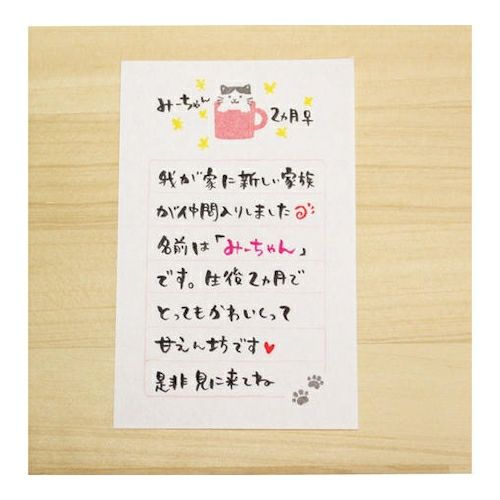 みーちゃん
2ヵ月♀
我が家に新しい家族
が仲間入りしました
名前は「みーちゃん」
です。生後2ヵ月で
とってもかわいくって
甘えん坊です♥
是非見に来てね